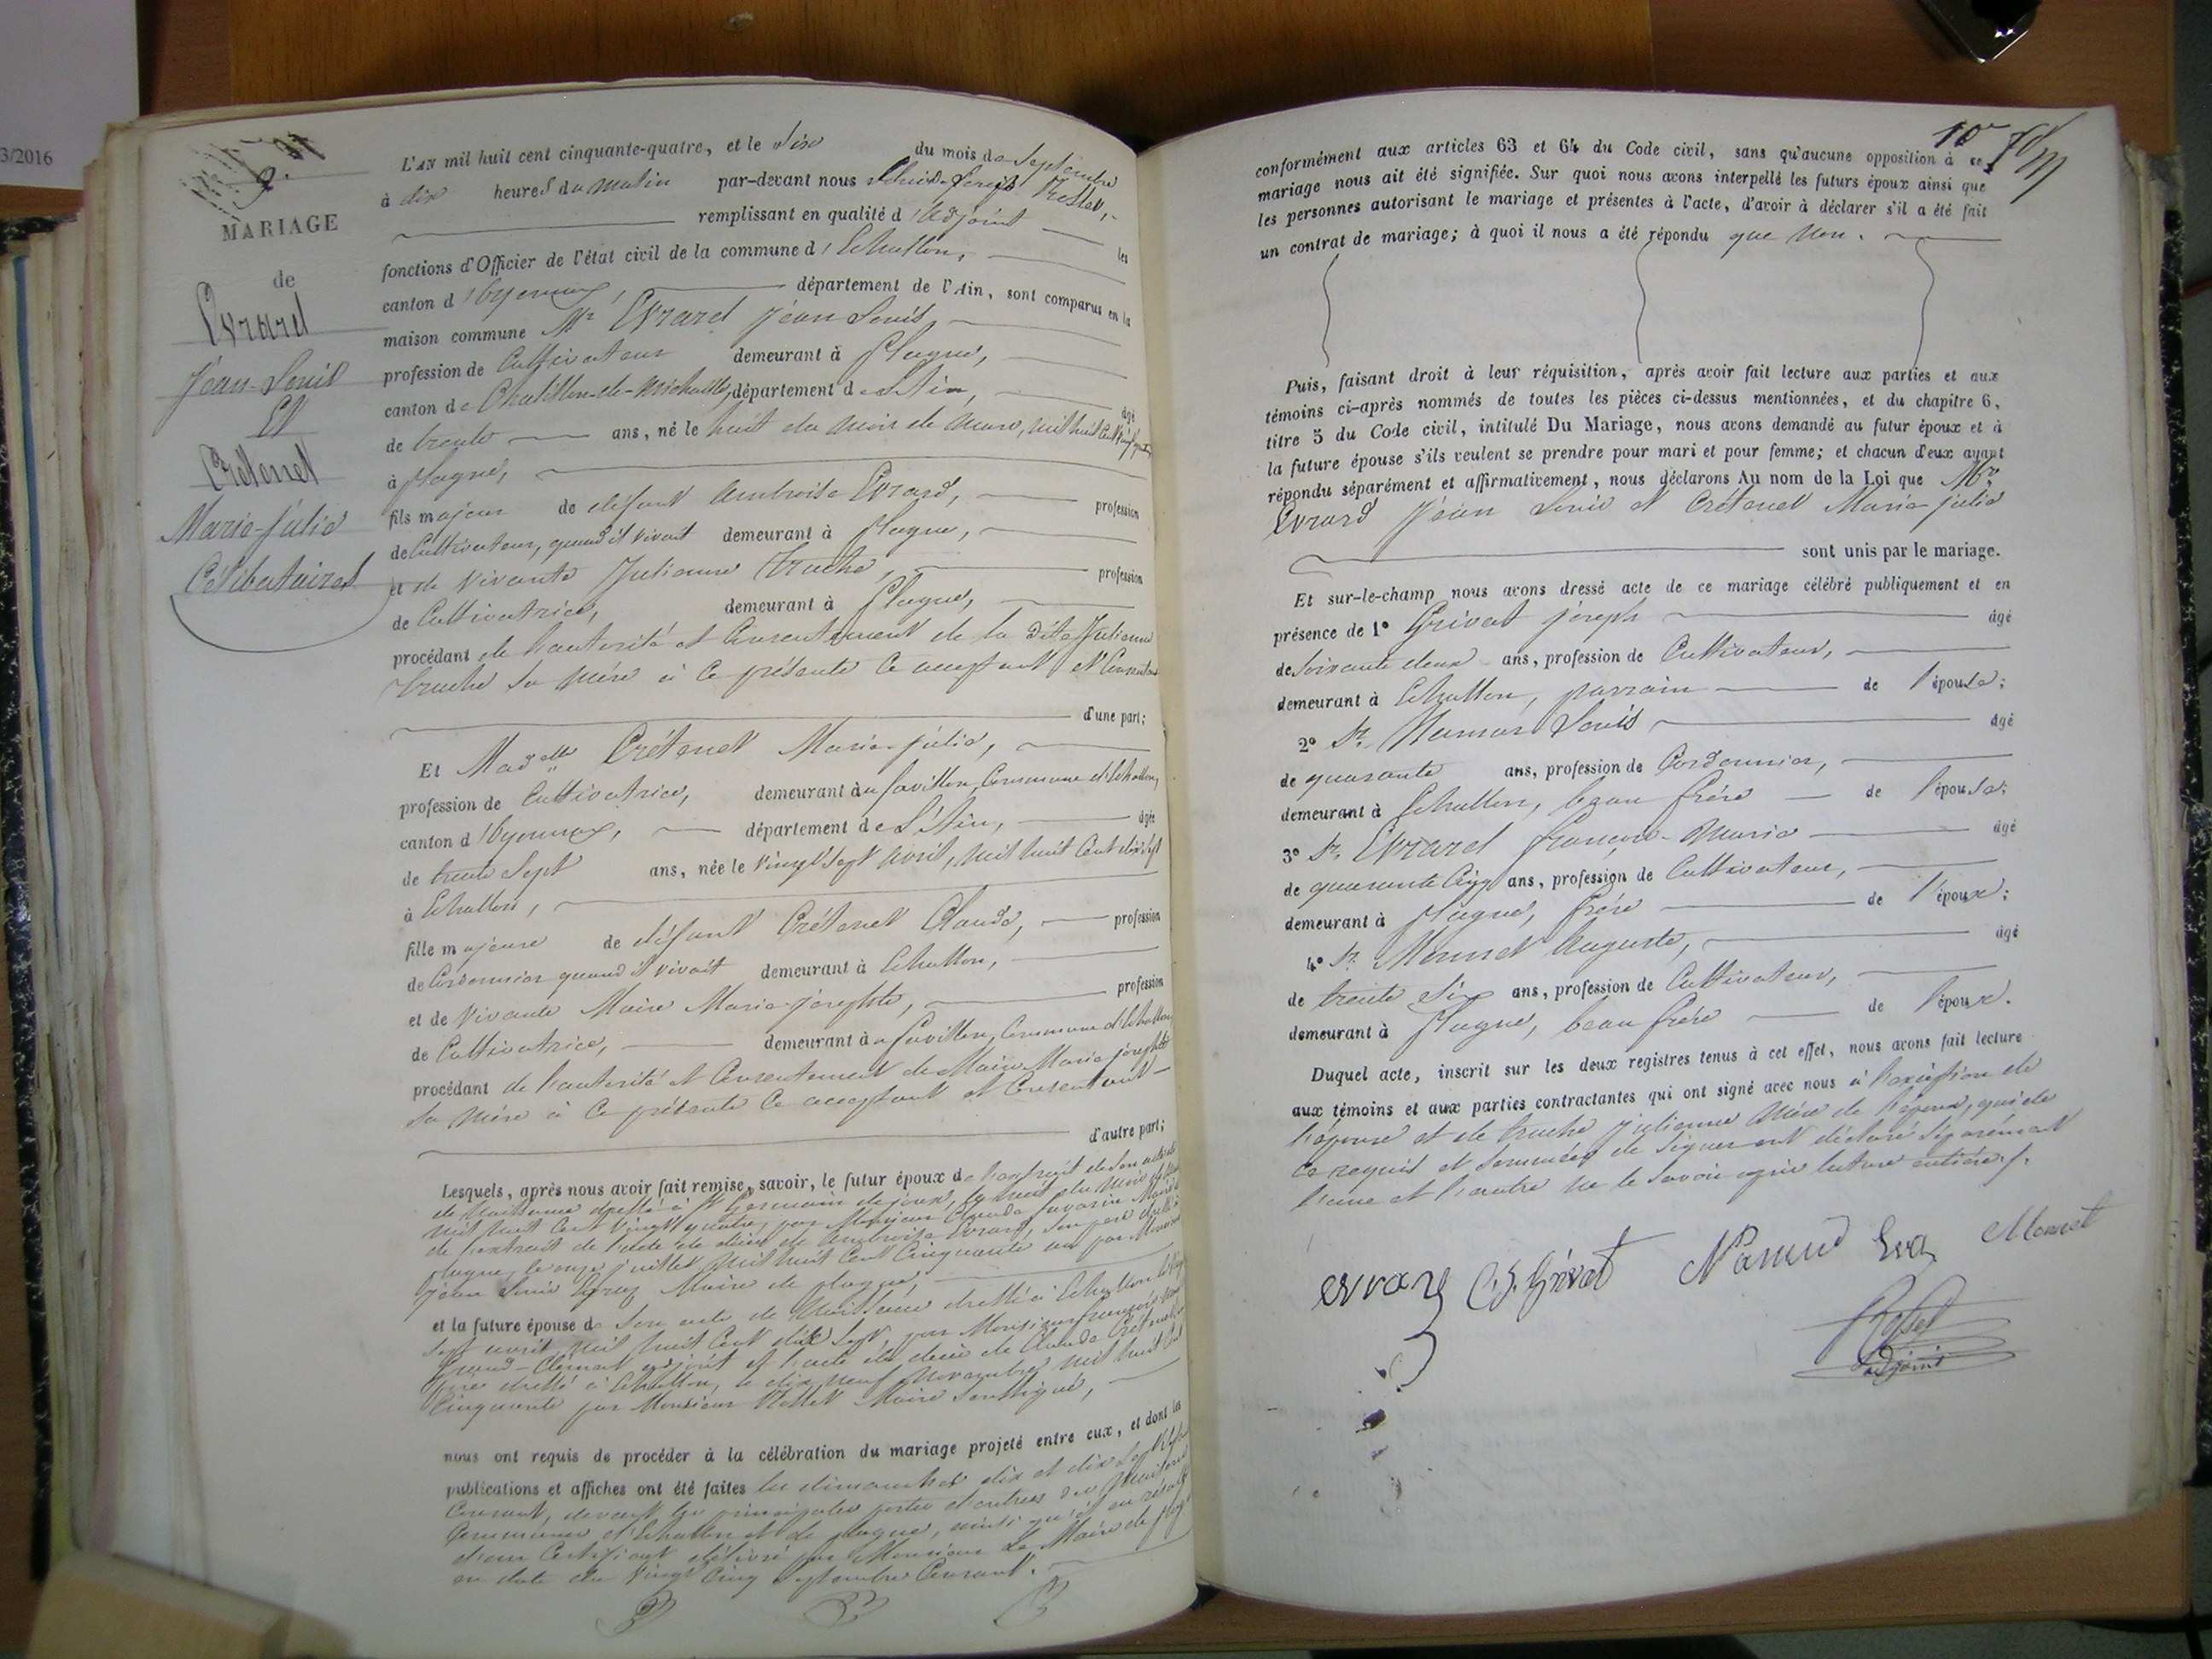 3/2016
9.
MARIAGE
de
Evrard
Jean-Louis
Et
Crétenet
Marie-Julie
Célibataires
L'an mil huit cent cinquante-quatre, et le du mois de Septembre
à dix heures du matin par-devant nous Joseph Rosset,
remplissant en qualité d'adjoint les
fonctions d'Officier de l'état civil de la commune d'Echallon,
canton d'Oyonnax, département de l'Ain, sont comparus en la
maison commune Mr Evrard Jean Louis
profession de Cultivateur demeurant à Plagne,
canton de Chatillon-de-Michaille, département de l'Ain, âgé
de trente ans, né le huit du mois de mars, mil huit cent vingt quatre
à Plagne,
fils majeur de défunt Ambroise Evrard, profession
de Cultivateur, quand il vivait demeurant à Plagne,
et de vivante Julienne Truche, profession
de Cultivatrice, demeurant à Plagne,
procédant de l'autorité et Consentement de la dite Julienne
Truche sa mère à ce présente ce acceptant et Consentant
d'une part;
Et Madelle Crétenet Marie-julie,
profession de Cultivatrice, demeurant à Favillon, Commune d'Echallon,
canton d'Oyonnax, département de l'Ain, âgée
de trente sept ans, née le vingt sept avril, mil huit Cent dix sept
à Echallon,
fille majeure de défunt Crétenet Claude, profession
de Cordonnier quand il vivait demeurant à Echallon,
et de vivante Maire Marie-josephte, profession
de Cultivatrice, demeurant à Favillon, Commune d'Echallon
procédant de l'autorité et Consentement de Maire Marie josephte
sa mère à ce présente ce acceptant et Consentant
d'autre part;
Lesquels, après nous avoir fait remise, savoir, le futur époux de l'extrait de son acte
de naissance dressé à St Germain de joux, le huit du mois de mars
mil huit Cent vingt quatre, par Monsieur Claude Maire
de l'extrait de l'acte de décès de Ambroise Evrard, son père dressé à
Plagne, le onze juillet mil huit Cent Cinquante un par Monsieur
jean Louis Maire de Plagne,
et la future épouse de son acte de Naissance dressé à Echallon le vingt
sept avril mil huit Cent dix Sept, par Monsieur françois
Grand-Clément adjoint et l'acte de décès de Claude Crétenet son
père dressé à Echallon, le dix neuf Novembre mil huit Cent
Cinquante par Monsieur Rosset Maire soussigné,
nous ont requis de procéder à la célébration du mariage projeté entre eux, et dont les
publications et affiches ont été faites les dimanches dix et dix sept
Courant, devant les principales portes d'entrées des Maisons
Communes d'Echallon et de Plagne, ainsi qu'il en résulte
d'un Certificat délivré par Monsieur Le Maire de Plagne
en date du vingt Cinq Septembre Courant.
10
conformément aux articles 63 et 64 du Code civil, sans qu'aucune opposition à ce
mariage nous ait été signifiée. Sur quoi nous avons interpellé les futurs époux ainsi que
les personnes autorisant le mariage et présentes à l'acte, d'avoir à déclarer s'il a été fait
un contrat de mariage; à quoi il nous a été répondu que Non.
Puis, faisant droit à leur réquisition, après avoir fait lecture aux parties et aux
témoins ci-après nommés de toutes les pièces ci-dessus mentionnées, et du chapitre 6,
titre 5 du Code civil, intitulé Du Mariage, nous avons demandé au futur époux et à
la future épouse s'ils veulent se prendre pour mari et pour femme; et chacun d'eux ayant
répondu séparément et affirmativement, nous déclarons Au nom de la Loi que Mr
Evrard Jean Louis et Crétenet Marie-julie
sont unis par le mariage.
Et sur-le-champ nous avons dressé acte de ce mariage célébré publiquement et en
présence de 1º Grivat joseph âgé
de soixante deux ans, profession de Cultivateur,
demeurant à Echallon, parrain de l'épouse;
2º Sr. Louis âgé
de quarante ans, profession de Cordonnier,
demeurant à Echallon, beau frère de l'épouse;
3º Sr. Evrard françois-Marie âgé
de quarante Cinq ans, profession de Cultivateur,
demeurant à Plagne, frère de l'époux;
4º Sr. Monnet Auguste, âgé
de trente six ans, profession de Cultivateur,
demeurant à Plagne, beau frère de l'époux.
Duquel acte, inscrit sur les deux registres tenus à cet effet, nous avons fait lecture
aux témoins et aux parties contractantes qui ont signé avec nous à l'exception de
l'épouse et de Truche Julienne Mère de l'époux, qui de
ce requis et sommées de signer ont déclaré séparément
l'une et l'autre ne le savoir après lecture entière
evrard C. J. Grivat Evrard Monnet
Rosset
adjoint